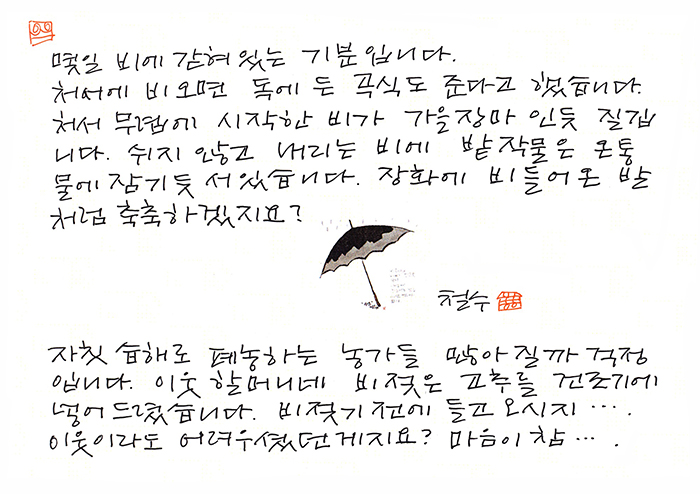 몇일 비에 갇혀있는 기분입니다.
처서에 비오면 독에 든 곡식도 준다고 했습니다.
처서 무렵에 시작한 비가 가을장마 인듯 질깁
니다. 쉬지 않고 내리는 비에 밭작물은 온통
물에 잠기듯 서있습니다. 장화에 비들어온 발
처럼 축축하겠지요?
철수
자칫 습해로 폐농하는 농가들 많아질까 걱정
입니다. 이웃 할머니네 비젖은 고추를 건조기에
넣어 드렸습니다. 비젖기 전에 들고 오시지 ….
이웃이라도 어려우셨던게지요? 마음이 참 ….